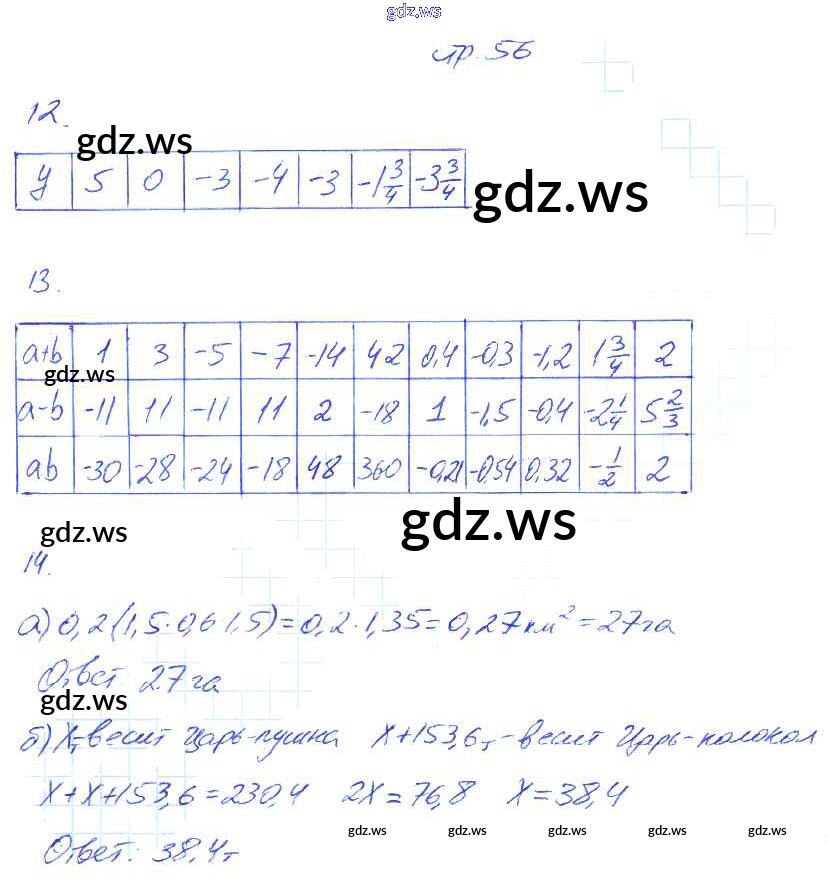 gdz.ws
стр. 56
12.
gdz.ws
y 5 0 -3 -4 -3 -1 3/4 -3 3/4
gdz.ws
13.
a+b 1 3 -5 -7 -14 42 0,4 -0,3 -1,2 1 3/4 2
gdz.ws
a-b -11 11 -11 11 2 -18 1 -1,5 -0,4 -2 1/4 5 2/3
ab -30 -28 -24 -18 48 360 -0,21 -0,54 0,32 -1/2 2
gdz.ws
gdz.ws
14.
а) 0,2(1,5·0,6·1,5)=0,2·1,35=0,27км²=27га
Ответ 27 га
gdz.ws
б) Xт-весит Царь-пушка X+153,6т-весит Царь-колокол
X+X+153,6=230,4 2X=76,8 X=38,4
gdz.ws gdz.ws gdz.ws gdz.ws gdz.ws
Ответ: 38,4т